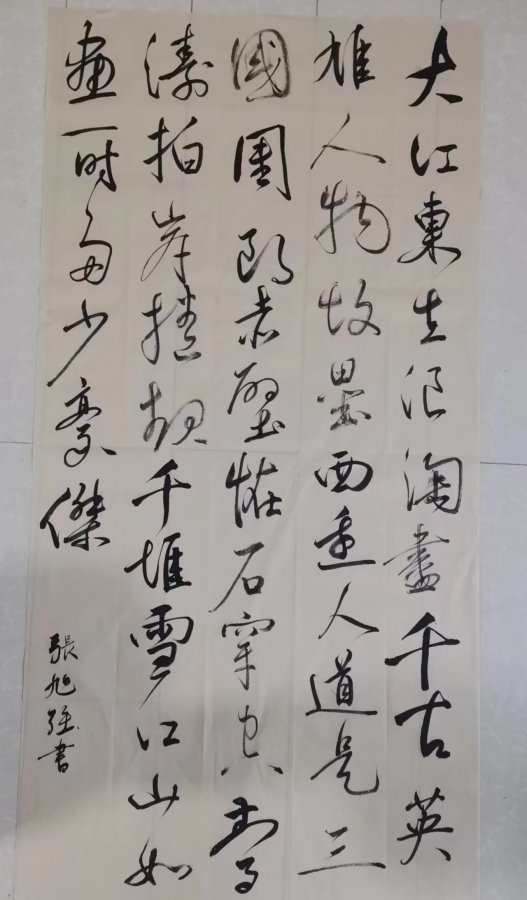 大江東去浪淘盡千古英
雄人物故壘西邊人道是三
國周郎赤壁恠石穿空驚
濤拍岸捲起千堆雪江山如
畫一時多少豪傑
張旭強書